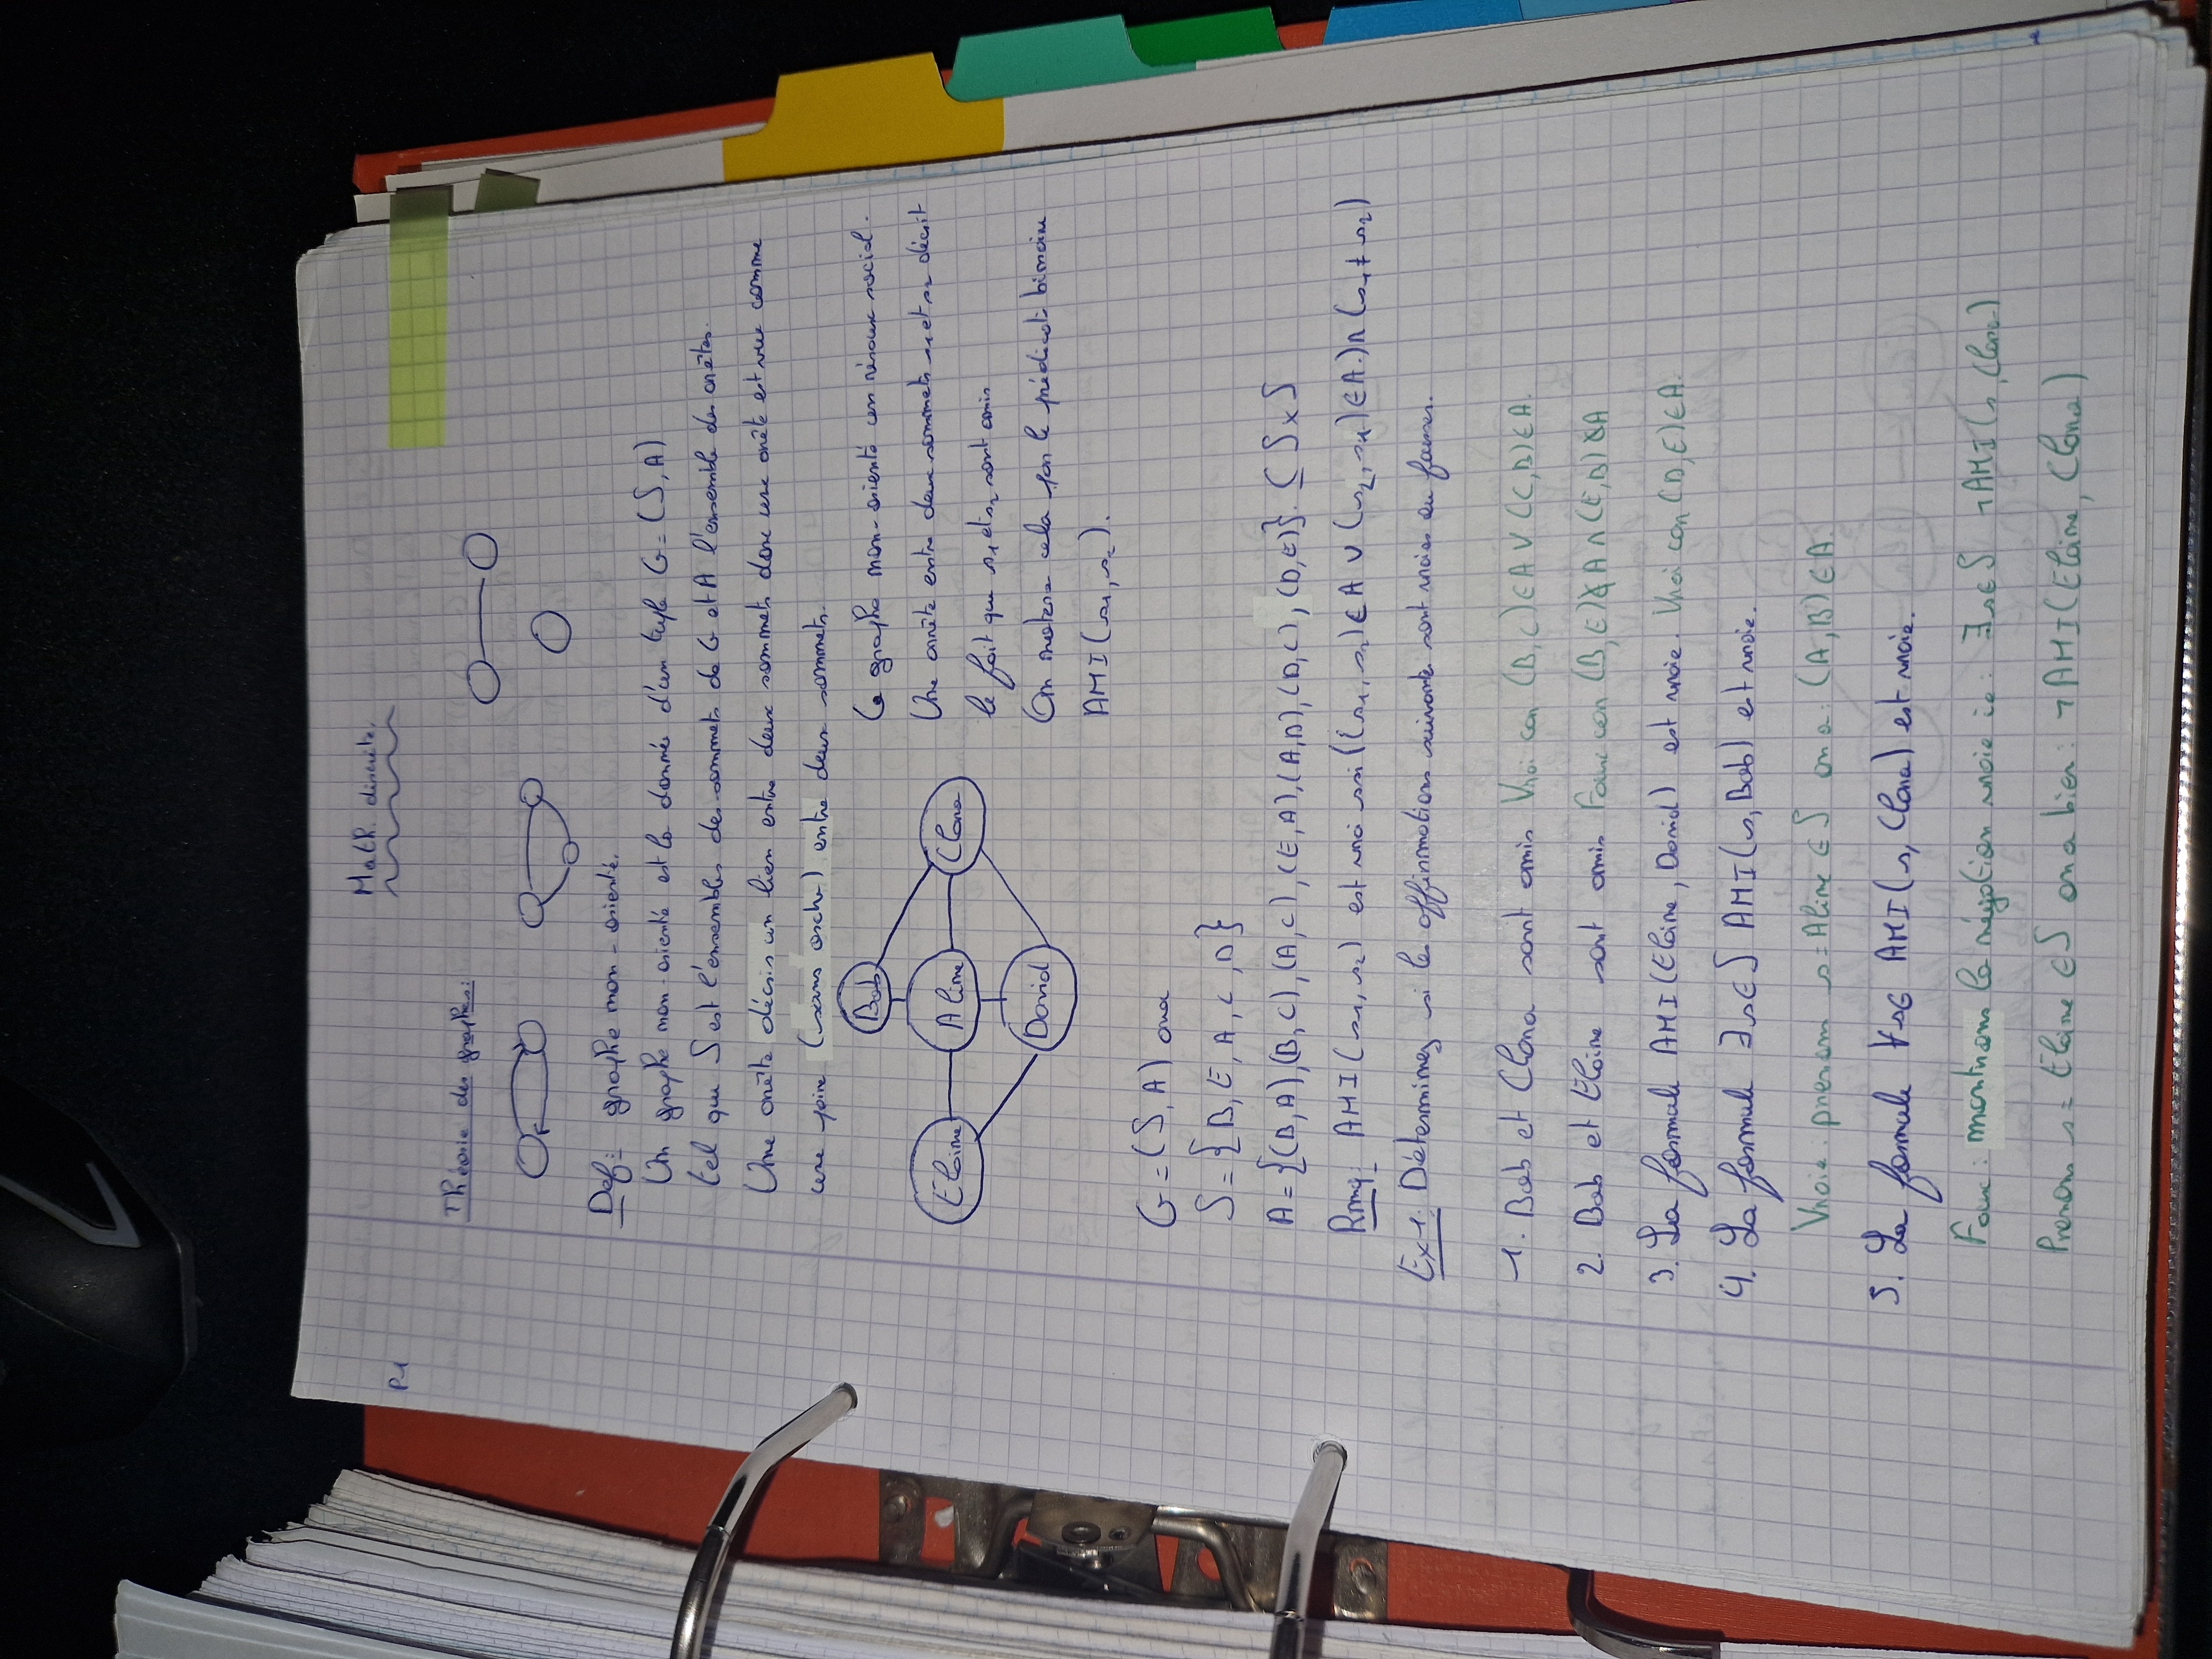 Math. discrète.
P1
Théorie des graphes:
Def: graphe non-orienté.
Un graphe non-orienté est la donnée d'un tuple G=(S,A)
tel que S est l'ensembles des sommets de G et A l'ensemble des arêtes.
Une arête décris un lien entre deux sommets donc une arête est vue comme
une paire (sans ordre) entre deux sommets.
Bob
Elaine Aline Clara
David
Ce graphe non-orienté un réseau social.
Une arrête entre deux sommets s1 et s2 décrit
le fait que s1 et s2 sont amis
On notera cela par le prédicat binaire
AMI(s1,s2).
G=(S,A) on a
S={B,E,A,C,D}
A={(B,A),(B,C),(A,C),(E,A),(A,D),(D,C),(D,E)}. ⊆ S×S
Rmq: AMI(s1,s2) est vrai ssi ((s1,s2)∈A ∨ (s2,s1)∈A.)∧(s1≠s2)
Ex1: Déterminez si les affirmations suivante sont vraies ou fausses.
1. Bob et Clara sont amis Vrai car (B,C)∈A ∨ (C,B)∈A.
2. Bob et Elaine sont amis Faux car (B,E)∉A ∧ (E,B)∉A
3. La formule AMI(Elaine, David) est vraie. Vrai car (D,E)∈A.
4. La formule ∃s∈S AMI(s,Bob) est vraie.
Vraie: prenons s=Aline∈S on a: (A,B)∈A.
5. La formule ∀s∈ AMI(s,Clara) est vraie.
Faux: montrons la négation vraie ie: ∃s∈S ¬AMI(s,Clara)
Prenons s=Elaine∈S on a bien: ¬AMI(Elaine, Clara)